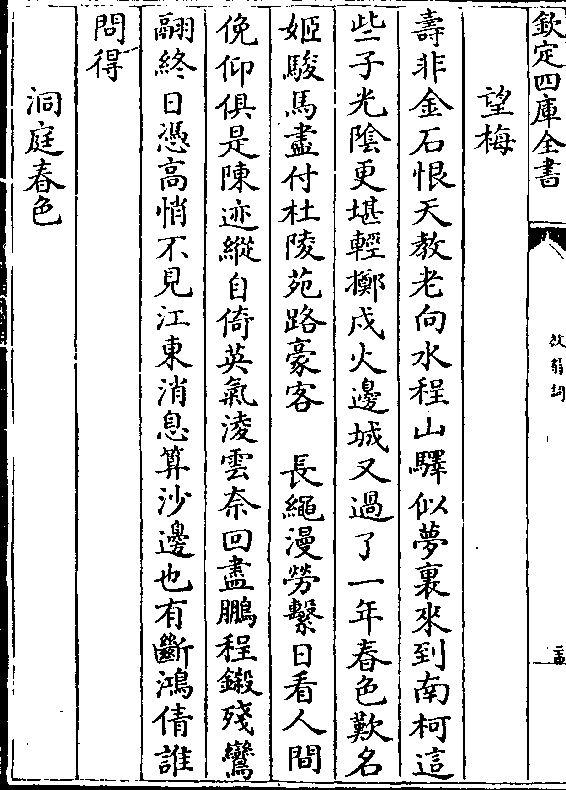 欽定四庫全書
望梅
壽非金石恨天教老向水程山驛似夢裏來到南柯這
些子光陰更堪輕擲戍火邊城又過了一年春色歎名
姬駿馬盡付杜陵苑路豪客　長繩漫勞繫日看人間
俛仰俱是陳迹縱自倚英氣淩雲奈回盡鵬程鎩殘鸞
翮終日憑高悄不見江東消息算沙邊也有斷鴻倩誰
問得
洞庭春色
放翁詞